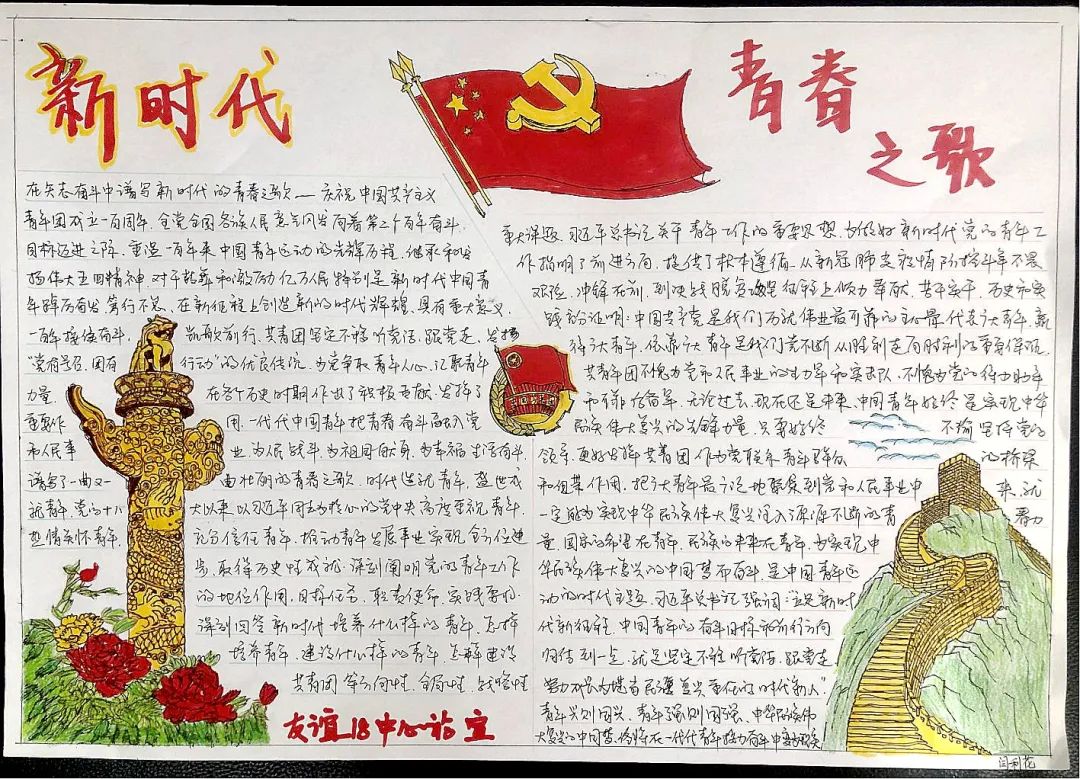 新时代
青春
之歌
在矢志奋斗中谱写新时代的青春之歌——庆祝中国共产主义
青年团成立一百周年 全党全国各族人民意气风发向着第二个百年奋斗
目标迈进之际，重温一百年来中国青年运动的光辉历程，继承和发
扬伟大五四精神，对于鼓舞和激励亿万人民特别是新时代中国青
年踔厉奋发、笃行不怠、在新征程上创造新的时代辉煌，具有重大意义，
一百年接续奋斗， 凯歌前行，共青团坚定不移听党话、跟党走，发扬
“党有号召、团有 行动”的优良传统，为党争取青年人心、汇聚青年
力量 在各个历史时期作出了积极贡献、发挥了
重要作 用，一代代中国青年把青春奋斗融入党
和人民事 业，为人民战斗、为祖国献身、为幸福生活奋斗，
谱写了一曲又一 曲壮丽的青春之歌。时代造就青年，盛世成
就青年，党的十八 大以来，以习近平同志为核心的党中央高度重视青年、
热情关怀青年、 充分信任青年，推动青年发展事业实现全方位进
步、取得历史性成就，深刻阐明党的青年工作
的地位作用、目标任务、职责使命、实践要求，
深刻回答新时代培养什么样的青年、怎样
培养青年，建设什么样的青年、怎样建设
共青团等方向性、全局性、战略性
重大课题，习近平总书记关于青年工作的重要思想，为做好新时代党的青年工
作指明了前进方向，提供了根本遵循。从新冠肺炎疫情防控斗争不畏
艰险、冲锋在前，到决战脱贫攻坚征程上倾力奉献、苦干实干，历史和实
践充分证明：中国共产党是我们成就伟业最可靠的主心骨，代表广大青年、赢
得广大青年、依靠广大青年是我们党不断从胜利走向胜利的重要保证，
共青团不愧为党和人民事业的生力军和突击队，不愧为党的得力助手
和可靠后备军，无论过去、现在还是未来，中国青年始终是实现中华
民族伟大复兴的先锋力量，只要始终 不渝坚持党的
领导，更好发挥共青团作为党联系青年群众 的桥梁
和纽带作用，把广大青年最广泛地聚集到党和人民事业中 来，就
一定能为实现中华民族伟大复兴注入源源不断的青 春力
量，国家的希望在青年，民族的未来在青年，为实现中
华民族伟大复兴的中国梦而奋斗，是中国青年运
动的时代主题，习近平总书记强调：“在新时
代新征程，中国青年的奋斗目标和前行方向
归结到一点，就是坚定不移听党话、跟党走，
努力成长为堪当民族复兴重任的时代新人”
青年兴则国兴，青年强则国强，中华民族伟
大复兴的中国梦，终将在一代代青年接力奋斗中变为现实
友谊18中心站 宣
闫利花